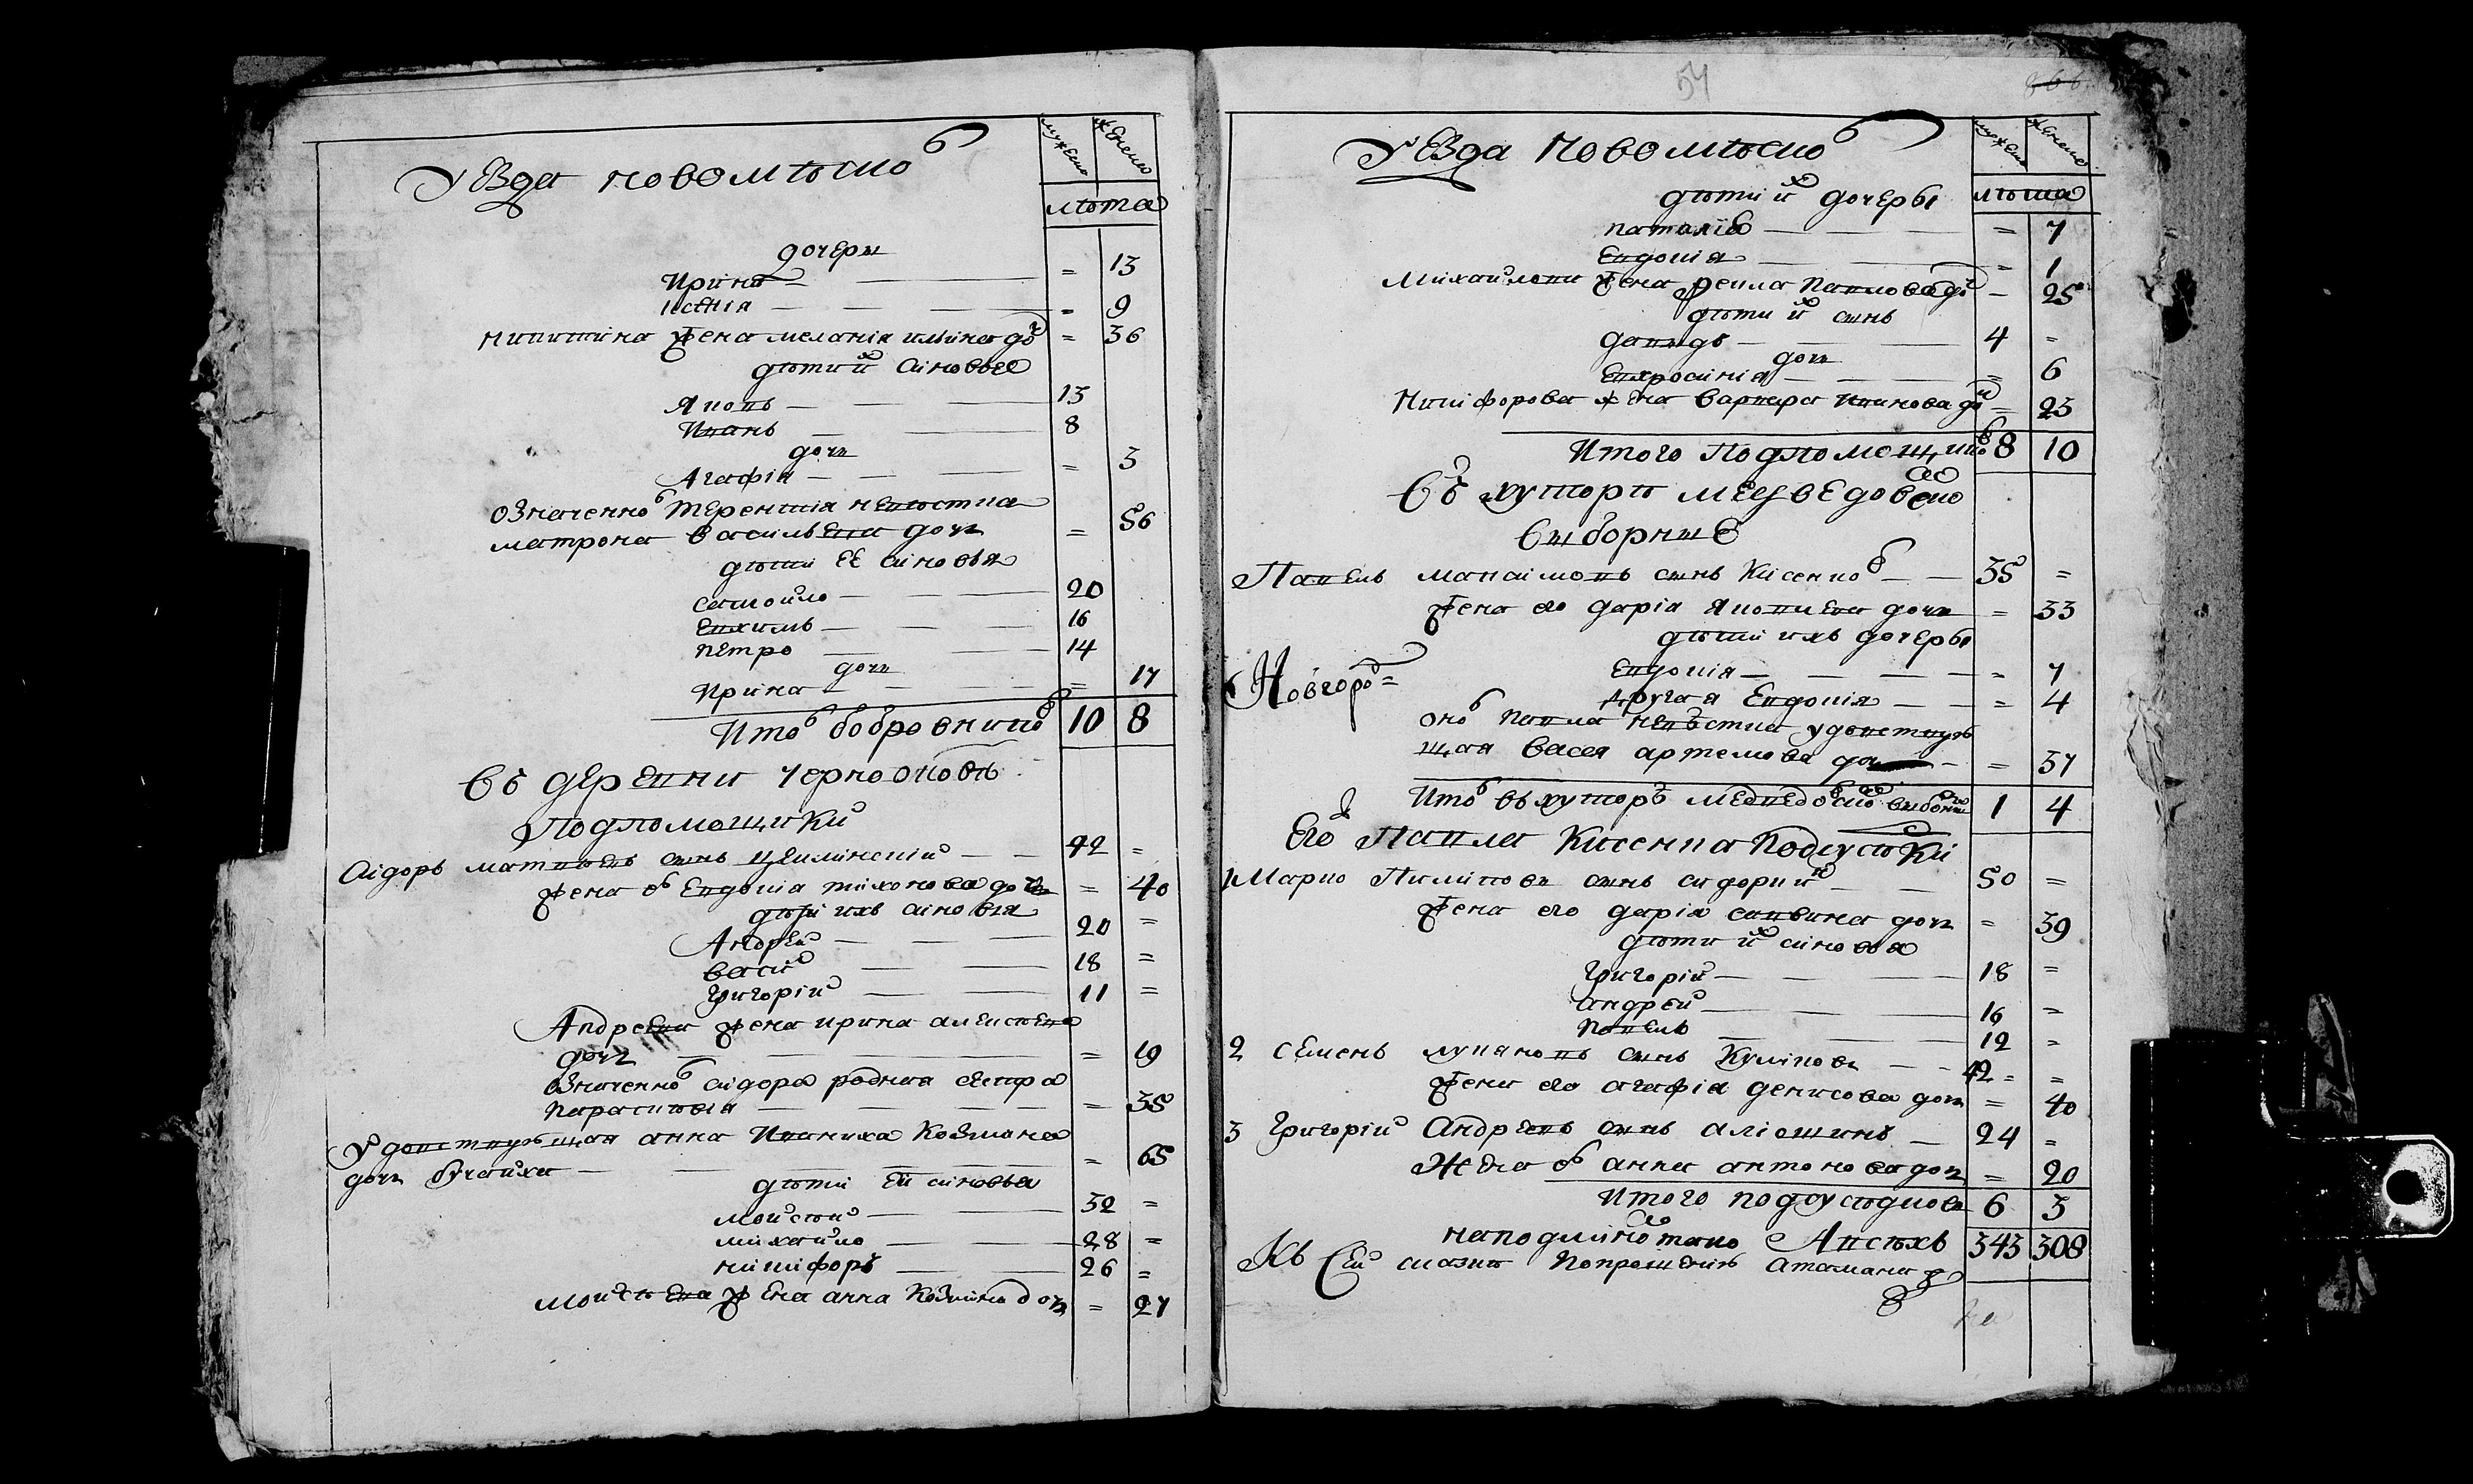 Уезда Новомѣско
мужеск
женско
лѣта
дочери
Ирина = 13
Ксенія = 9
Никитина жена меланія ильина до = 36
дѣти их синовья
Яковъ 13
Иванъ 8
дочь
Агафія = 3
означенно терентія невѣстка
матрона васильева дочь = 56
дѣти ее синовья
самойло 20
Евхимъ 16
петро 14
дочь
Ирина = 17
Итого бобровнико 10 8
Въ деревни черноокове
Подпомощики
Сідоръ матвѣевъ синъ 42 =
жена его Евдокіа тихонова дочь = 40
дѣти ихъ синовья
Андрей 20 =
васил 18 =
Григорій 11 =
Андреева жена ирина алексѣева
дочь = 19
означенно сідора родная сестра
параскевія = 35
Удовствующая анна Иваниха Козмина
дочь = 65
дѣти ей синовья
мойсѣй 32 =
михайло 28 =
никифоръ 26 =
мойсѣева жена анна Козмина дочь = 27
54
366
Уезда Новомѣско
мужеск
женско
лѣта
дѣти их дочеры
наталія = 7
Евдокія = 1
Михайлови жена фекла павлова до = 25
дѣти их синъ
давидъ 4 =
дочь
Евхросинія = 6
Никифорова жена варвара иванова до = 23
Итого подпомощико 8 10
Въ хуторѣ медведовско
виборние
Павелъ максимовъ синъ Кисенко 35 =
жена его дарія яковлева дочь = 33
дѣти ихъ дочеры
Новгоро =
Евдокія = 7
другая Евдокія = 4
оно павла невѣстка удовствую
щая васса артемова до = 37
Ито въ хуторѣ медведовско виборни 1 4
Его Павла Кисенка подсусѣдки
Марко Пилиповъ синъ сидорки 50 =
жена его дарія саввина дочь = 39
дѣти их синовья
Григорій 18 =
андрей 16 =
павелъ 12 =
2 семенъ лукяновъ синъ Куліковъ 42 =
жена его агафія денисова дочь = 40
3 Григорій Андреевъ синъ алюшинъ 24 =
Жена его анна антонова дочь = 20
Итого подсусѣдковъ 6 3
наподлинно тако Авсѣхъ 343 308
Къ сей сказки попрошению атамана